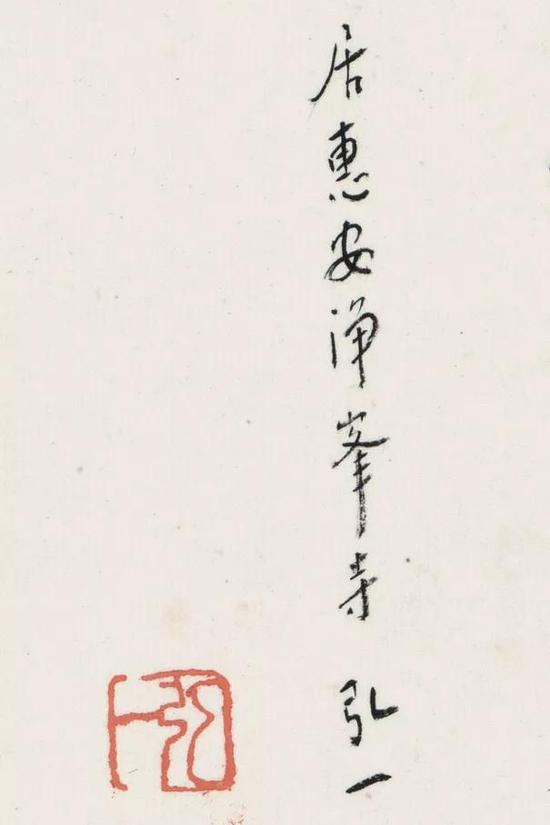 居惠安淨峯寺 弘一